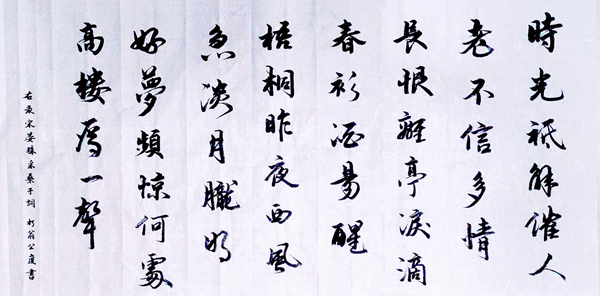 時光祇解催人
老不信多情
長恨離亭淚滴
春衫酒易醒
梧桐昨夜西風
急淡月朧明
好夢頻惊何處
高楼雁一聲
右录宋晏殊采桑子詞 朽翁公度書